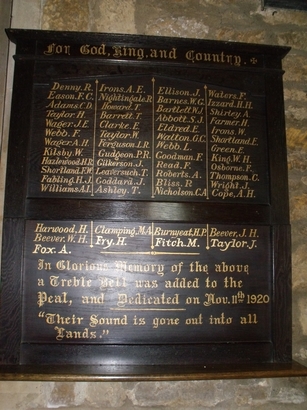 For God, King, and Country.
Denny. R. Irons. A. E. Ellison. J. Waters. F.
Eason. F. C. Nightingale. R. Barnes. W. G. Izzard. H. H.
Adams. C. D. Howard. T. Bartlett. W. J. Shirley. A.
Taylor. H. Barrett. T. Abbott. S. J. Farmer. H.
Wager. J. E. Clarke. E. Eldred. E. Irons. W.
Webb. F. Taylor. W. Watton. G. C. Shortland. E.
Wager. A. H. Ferguson. L. R. Webb. L. Green. E.
Kilsby. W. Gudgeon. P. R. Goodman. F. King. W. H.
Hazlewood. H. R. Gibson. J. Read. F. Osborne. F.
Shortland. F. W. Leaversuch. T. Roberts. A. Thompson. C.
Fabling. H. J. Goddard. J. Bliss. R. Wright. J.
Williams. A. J. Ashley. T. Nicholson. C. A. Cope. A. H.
Harwood. H. Clamping. M. A. Burnyeat. H. P. Beever. J. H.
Beever. W. H. Fry. H. Fitch. M. Taylor. J.
Fox. A.
In Glorious Memory of the above
a Treble Bell was added to the
Peal, and Dedicated on Nov. 11th 1920
"Their Sound is gone out into all
Lands."